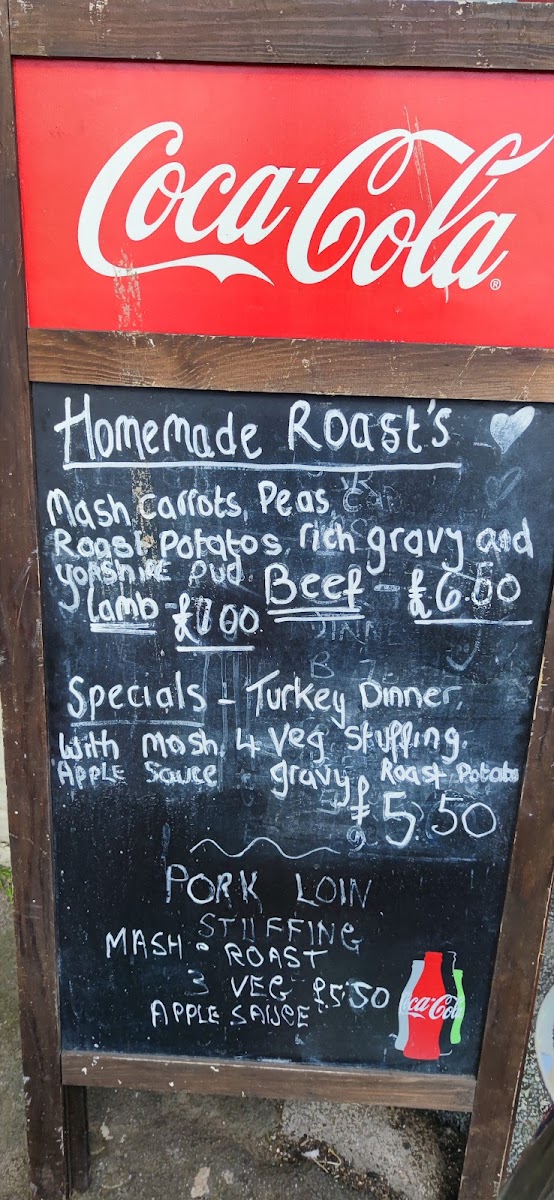 Coca-Cola®
Homemade Roast's
Mash Carrots, Peas,
Roast Potatos, rich gravy and
Yorshire pud. Beef - £6.00
Lamb - £7.00
Specials - Turkey Dinner,
With mash, 4 veg stuffing.
Apple Sauce gravy Roast Potato
£5.50
PORK LOIN
STUFFING
MASH • ROAST
3 VEG £5.50
APPLE SAUCE
Coca-Cola